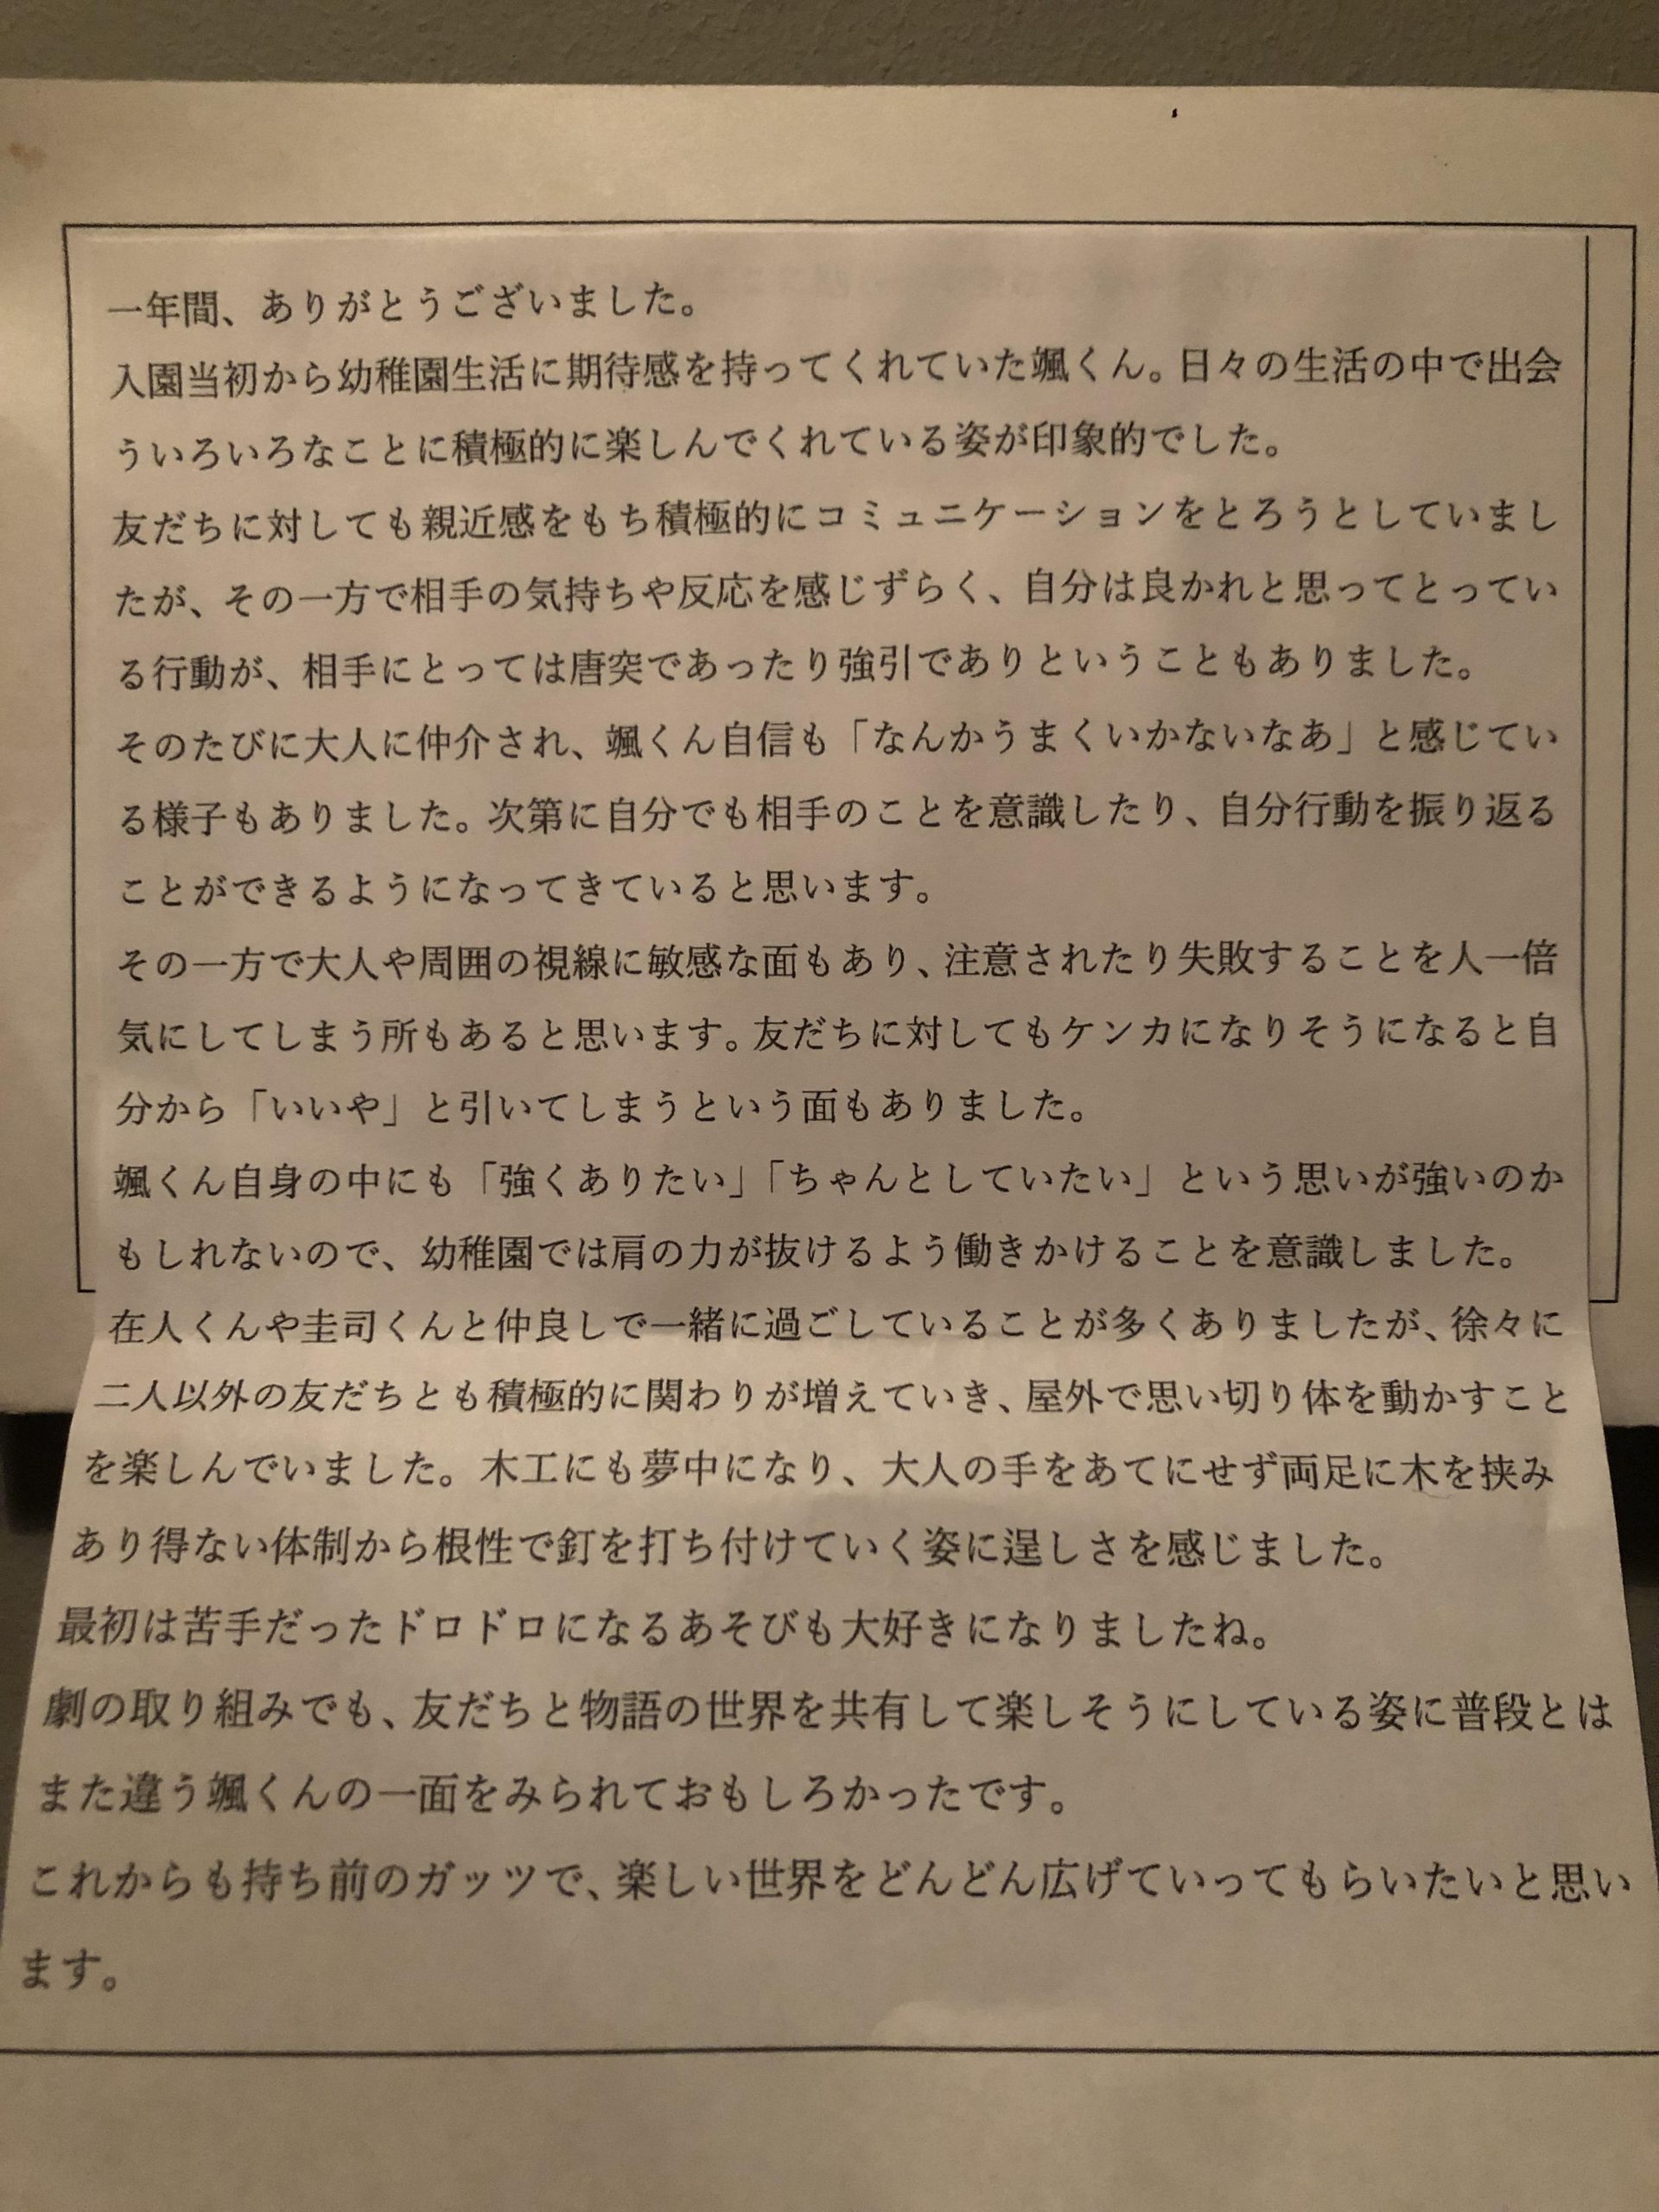 一年間、ありがとうございました。
入園当初から幼稚園生活に期待感を持ってくれていた颯くん。日々の生活の中で出会
ういろいろなことに積極的に楽しんでくれている姿が印象的でした。
友だちに対しても親近感をもち積極的にコミュニケーションをとろうとしていまし
たが、その一方で相手の気持ちや反応を感じずらく、自分は良かれと思ってとってい
る行動が、相手にとっては唐突であったり強引でありということもありました。
そのたびに大人に仲介され、颯くん自信も「なんかうまくいかないなあ」と感じてい
る様子もありました。次第に自分でも相手のことを意識したり、自分行動を振り返る
ことができるようになってきていると思います。
その一方で大人や周囲の視線に敏感な面もあり、注意されたり失敗することを人一倍
気にしてしまう所もあると思います。友だちに対してもケンカになりそうになると自
分から「いいや」と引いてしまうという面もありました。
颯くん自身の中にも「強くありたい」「ちゃんとしていたい」という思いが強いのか
もしれないので、幼稚園では肩の力が抜けるよう働きかけることを意識しました。
在人くんや圭司くんと仲良しで一緒に過ごしていることが多くありましたが、徐々に
二人以外の友だちとも積極的に関わりが増えていき、屋外で思い切り体を動かすこと
を楽しんでいました。木工にも夢中になり、大人の手をあてにせず両足に木を挟み
あり得ない体制から根性で釘を打ち付けていく姿に逞しさを感じました。
最初は苦手だったドロドロになるあそびも大好きになりましたね。
劇の取り組みでも、友だちと物語の世界を共有して楽しそうにしている姿に普段とは
また違う颯くんの一面をみられておもしろかったです。
これからも持ち前のガッツで、楽しい世界をどんどん広げていってもらいたいと思い
ます。